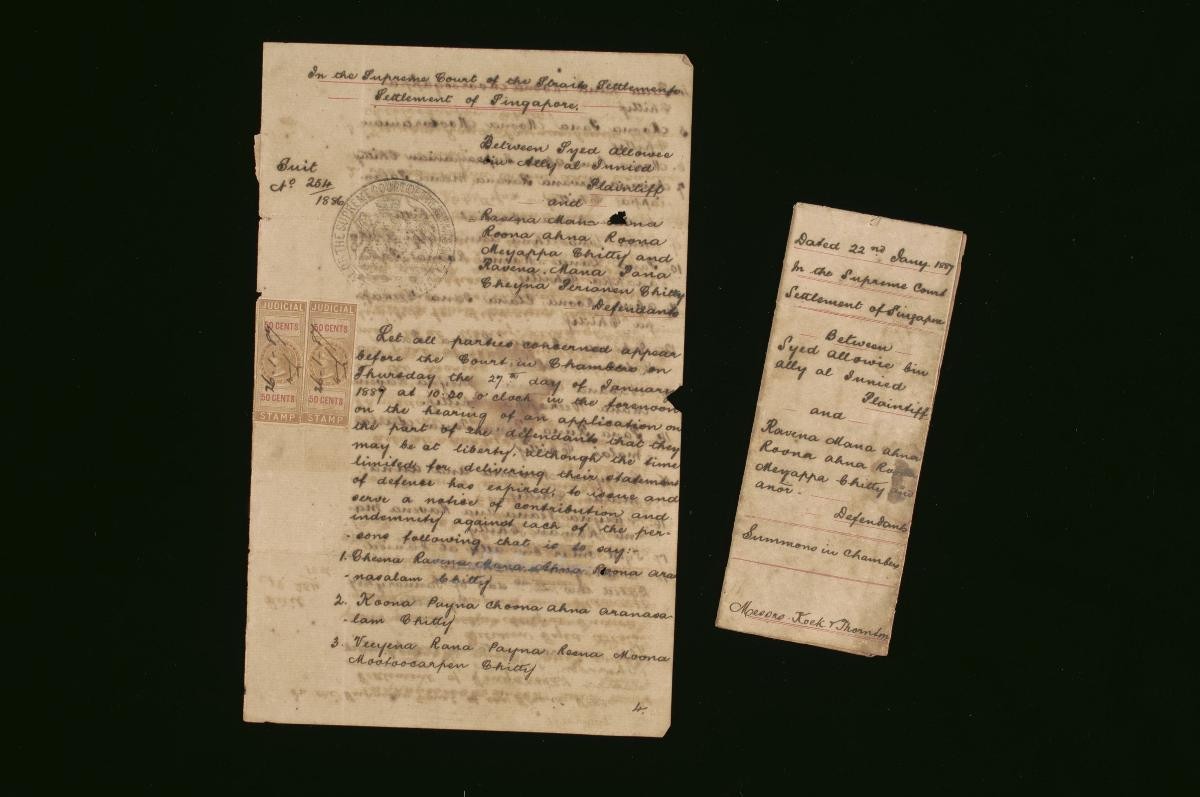 In the Supreme Court of the Straits Settlements
Settlement of Singapore.
Suit
No 254/1886
Between Syed Allowee
bin Ally al Junied
Plaintiff
and
Ravena Mana Ahna
Roona ahna Roona
Meyappa Chitty and
Ravena Mana Pana
Cheyna Perianen Chitty
Defendants
JUDICIAL JUDICIAL
50 CENTS 50 CENTS
50 CENTS 50 CENTS
STAMP STAMP
Let all parties concerned appear
before the Court in Chambers on
Thursday the 27th day of January
1887 at 10:30 o'clock in the forenoon
on the hearing of an application on
the part of the defendants that they
may be at liberty, although the time
limited for delivering their statement
of defence has expired, to issue and
serve a notice of contribution and
indemnity against each of the per-
-sons following that is to say:-
1. Cheena Ravena Mana Ahna Roona Ara
-nasalam Chitty
2. Koona Payna Choona Ahna Aranasa-
-lam Chitty
3. Veeyena Rana Payna Reena Moona
Mootoocarpen Chitty
4.
Dated 22nd Jany. 1887
In the Supreme Court
Settlement of Singapore
Between
Syed Allowie bin
ally al Junied
Plaintiff
and
Ravena Mana ahna
Roona ahna
Meyappa Chitty and
anor.
Defendants
Summons in Chambers
Messrs. Koek & Thornton